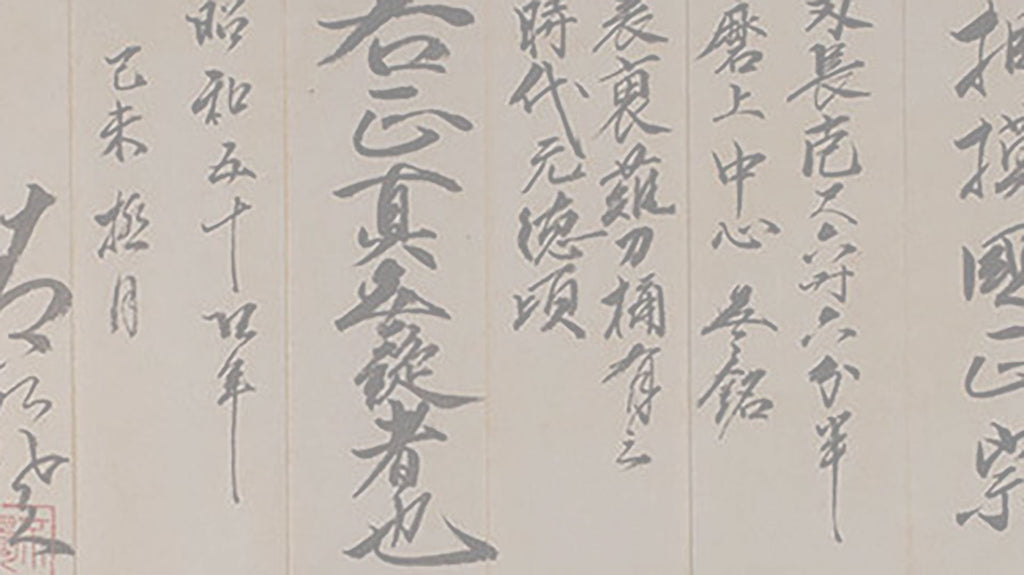 相摸國正宗
刃長壱尺六寸六分半
磨上中心 無銘
表裏薙刀樋有之
時代元徳頃
右正真無疑者也
昭和五十四年
己未 極月